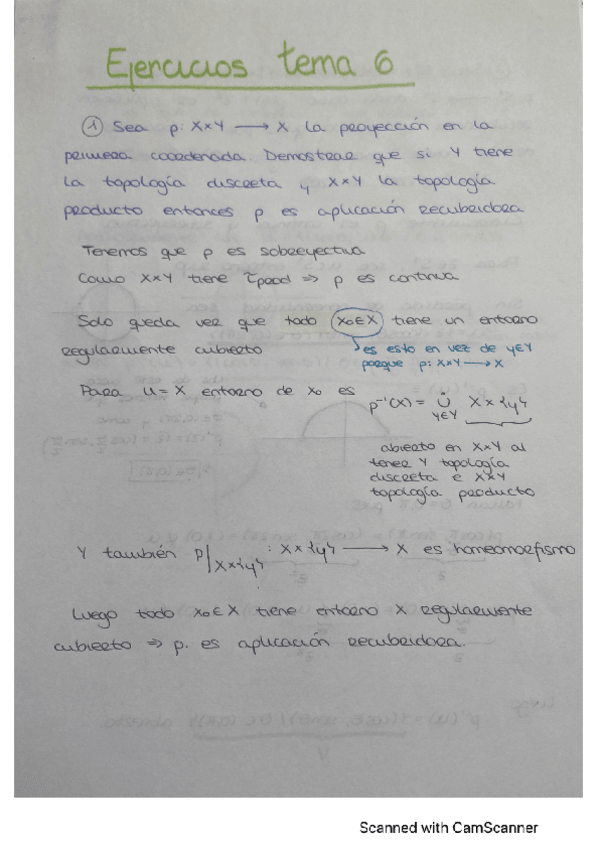 Ejercicios tema 6
① Sea p: X×Y ⟶ X la proyección en la
primera coordenada. Demostrar que si Y tiene
la topología discreta y X×Y la topología
producto entonces p es aplicación recubridora
Tenemos que p es sobreyectiva
Como X×Y tiene τprod ⇒ p es continua
Solo queda ver que todo x₀∈X tiene un entorno
regularmente cubierto
es esto en vez de y∈Y
porque p: X×Y ⟶ X
Para U = X entorno de x₀ es p⁻¹(X) = ∪̇ y∈Y X×{y}
abierto en X×Y al
tener Y topología
discreta e X×Y
topología producto
Y también p|X×{y} : X×{y} ⟶ X es homeomorfismo
Luego todo x₀∈X tiene entorno X regularmente
cubierto ⇒ p. es aplicación recubridora.
Scanned with CamScanner